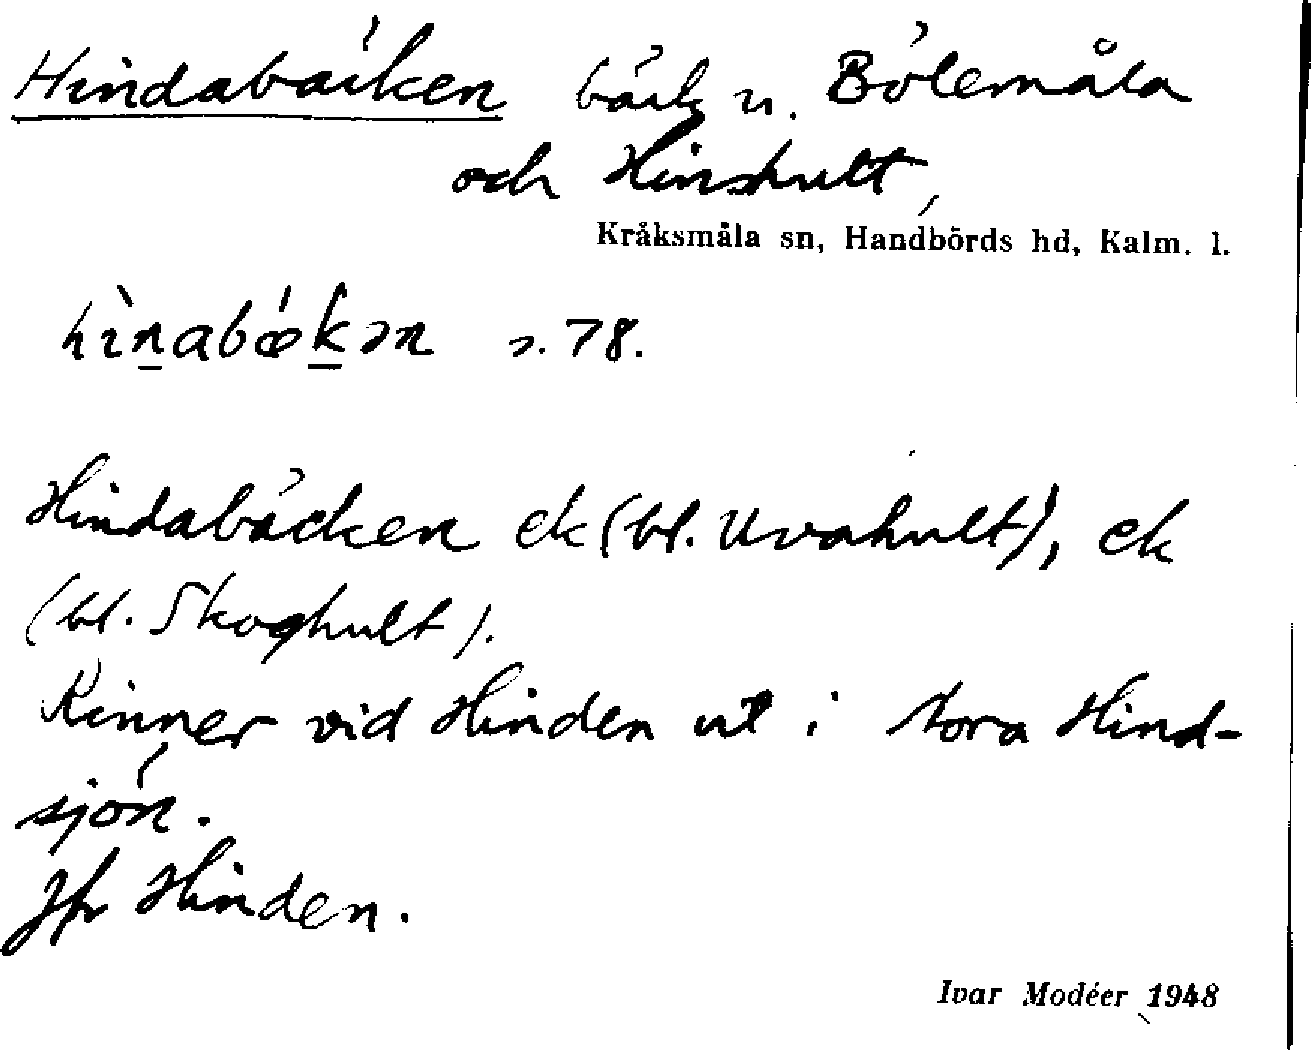 Hindabäcken bäck n. Bölemåla
och Hinshult,
Kråksmåla sn, Handbörds hd, Kalm. l.
hìn̲abǽk̲ən s. 78.
Hindabäcken ek (bl. Uvahult), ek
(bl. Skoghult).
Rinner vid Hinden ut i stora Hind-
sjön.
Jfr Hinden.
Ivar Modéer 1948